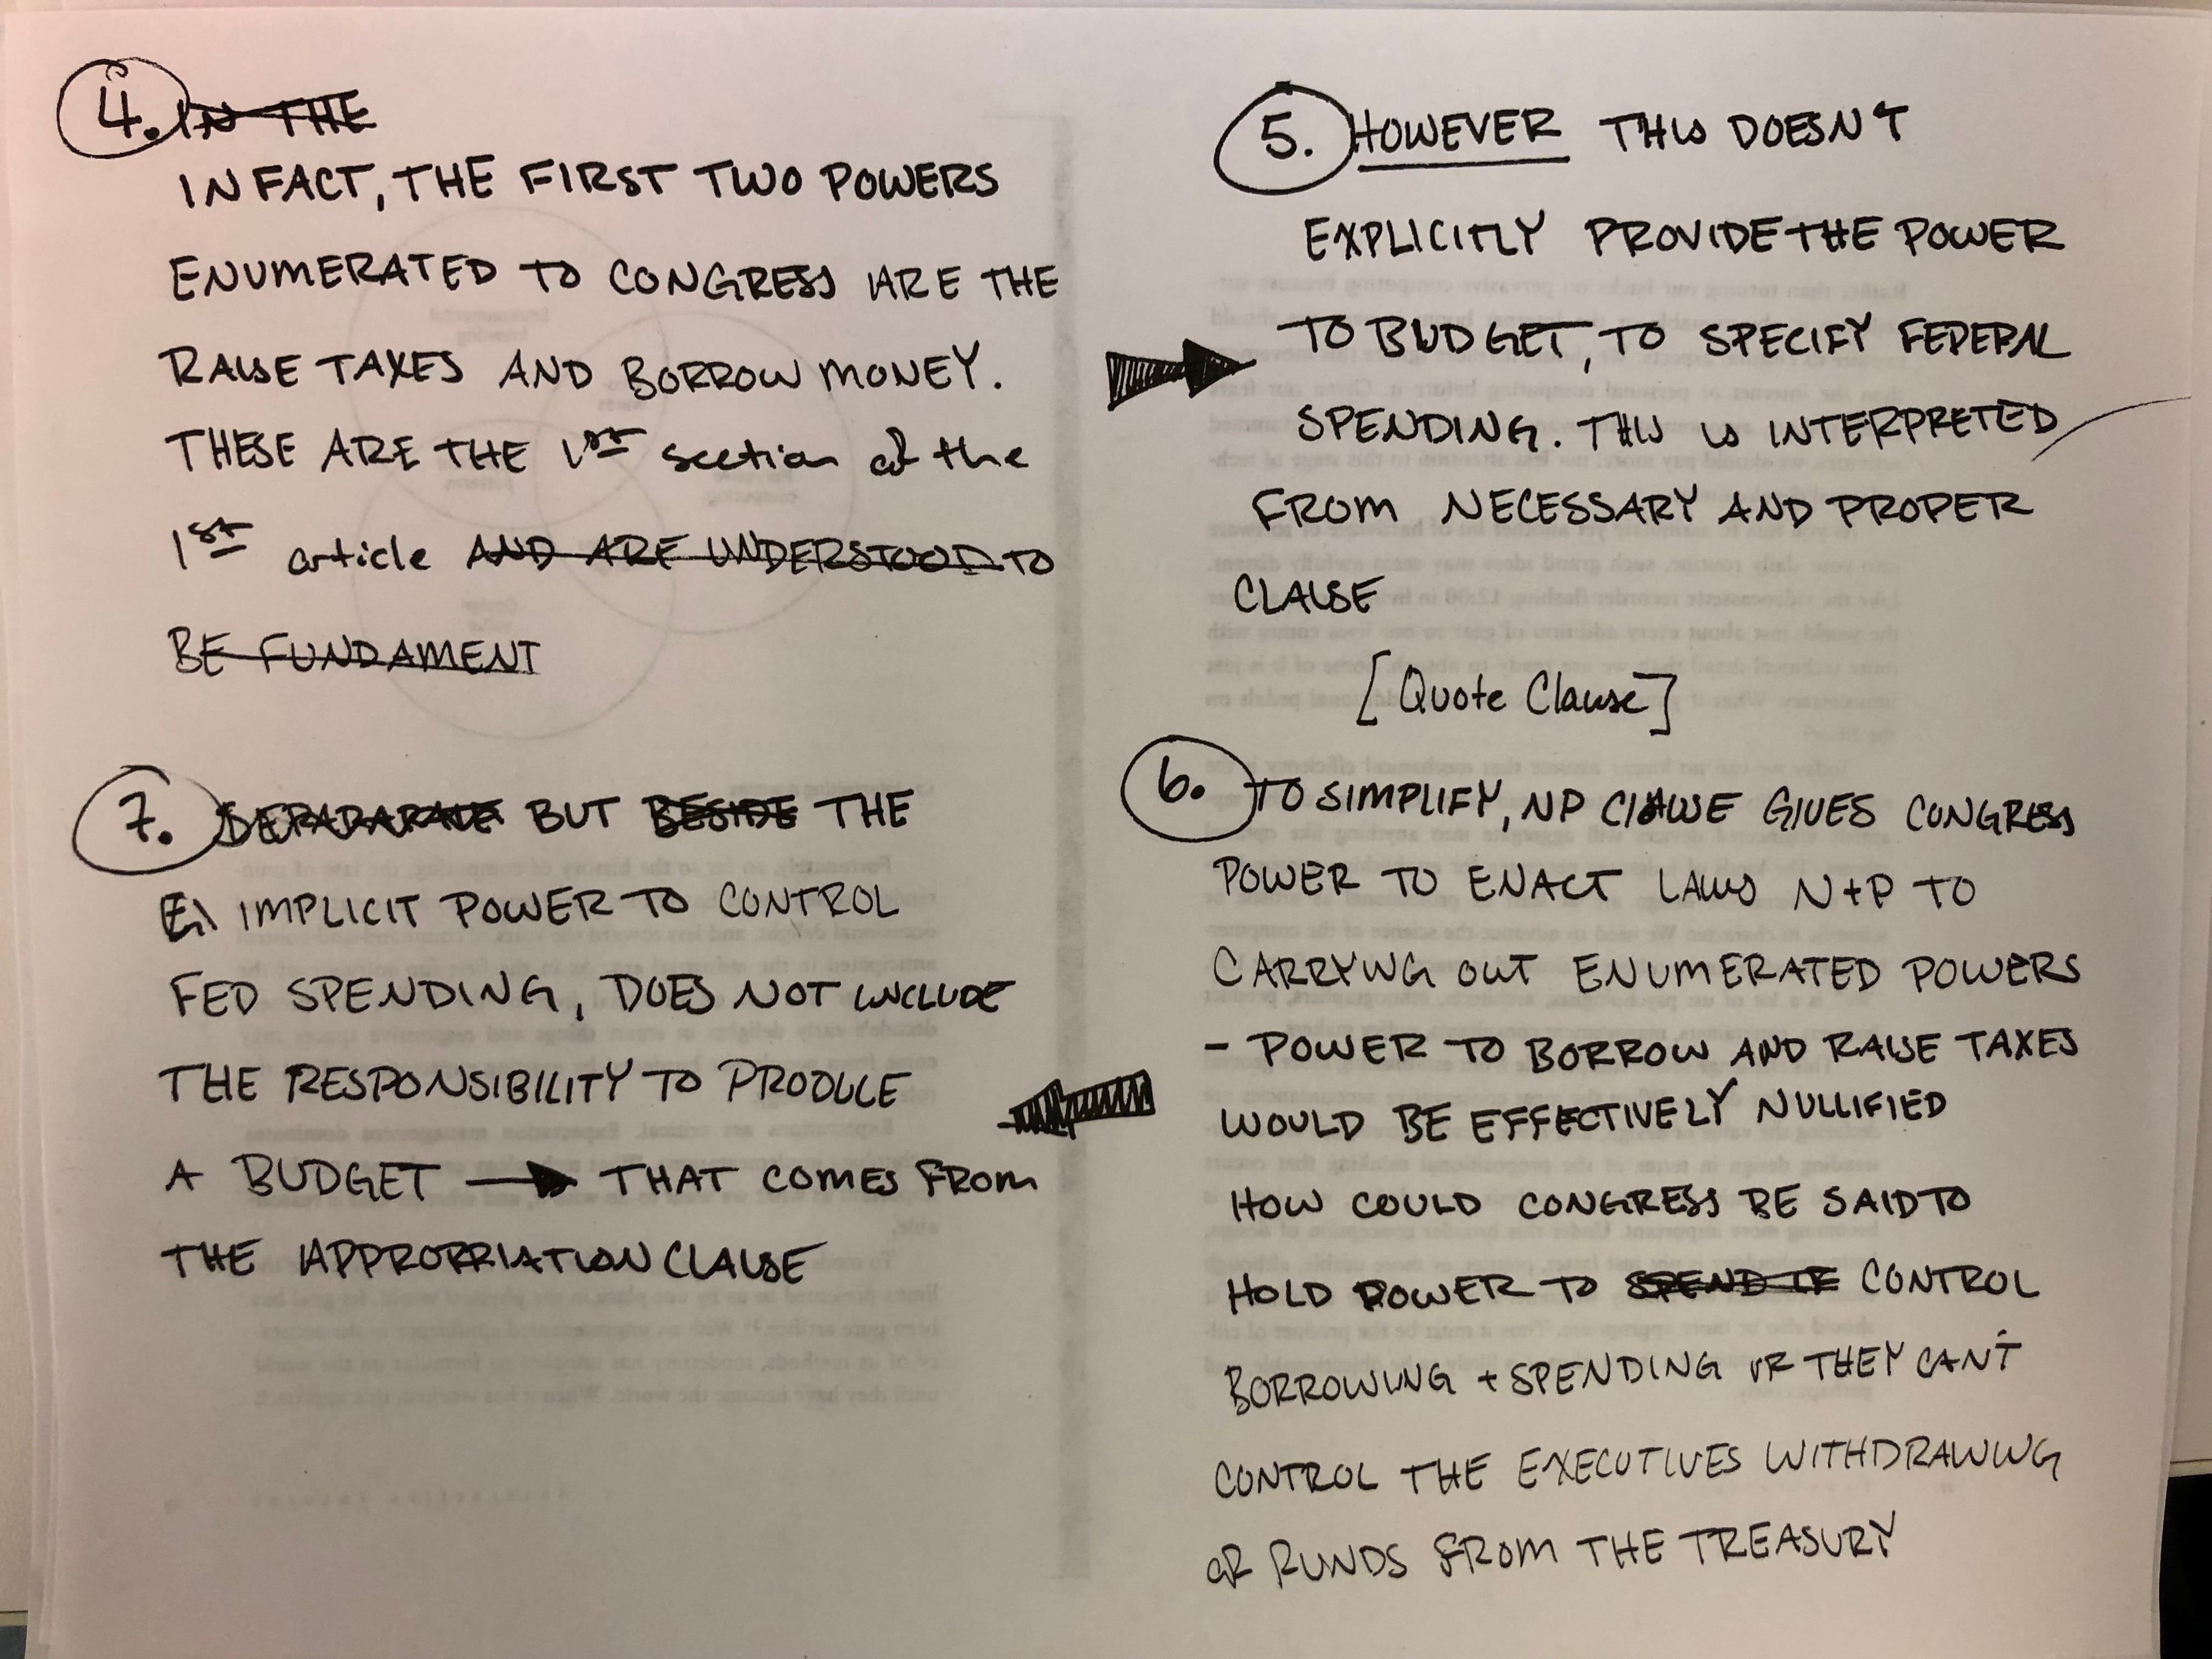 4. IN THE
IN FACT, THE FIRST TWO POWERS
ENUMERATED TO CONGRESS ARE THE
RAISE TAXES AND BORROW MONEY.
THESE ARE THE 1ST section of the
1st article AND ARE UNDERSTOOD TO
BE FUNDAMENT
5. HOWEVER THIS DOESN'T
EXPLICITLY PROVIDE THE POWER
TO BUDGET, TO SPECIFY FEDERAL
SPENDING. THIS IS INTERPRETED
FROM NECESSARY AND PROPER
CLAUSE
[Quote Clause]
6. TO SIMPLIFY, NP CLAUSE GIVES CONGRESS
POWER TO ENACT LAWS N+P TO
CARRYING OUT ENUMERATED POWERS
- POWER TO BORROW AND RAISE TAXES
WOULD BE EFFECTIVELY NULLIFIED
HOW COULD CONGRESS BE SAID TO
HOLD POWER TO SPEND IF CONTROL
BORROWING + SPENDING IF THEY CAN'T
CONTROL THE EXECUTIVES WITHDRAWING
OR FUNDS FROM THE TREASURY
7. BUT BESIDE THE
IMPLICIT POWER TO CONTROL
FED SPENDING, DOES NOT INCLUDE
THE RESPONSIBILITY TO PRODUCE
A BUDGET → THAT COMES FROM
THE APPROPRIATION CLAUSE